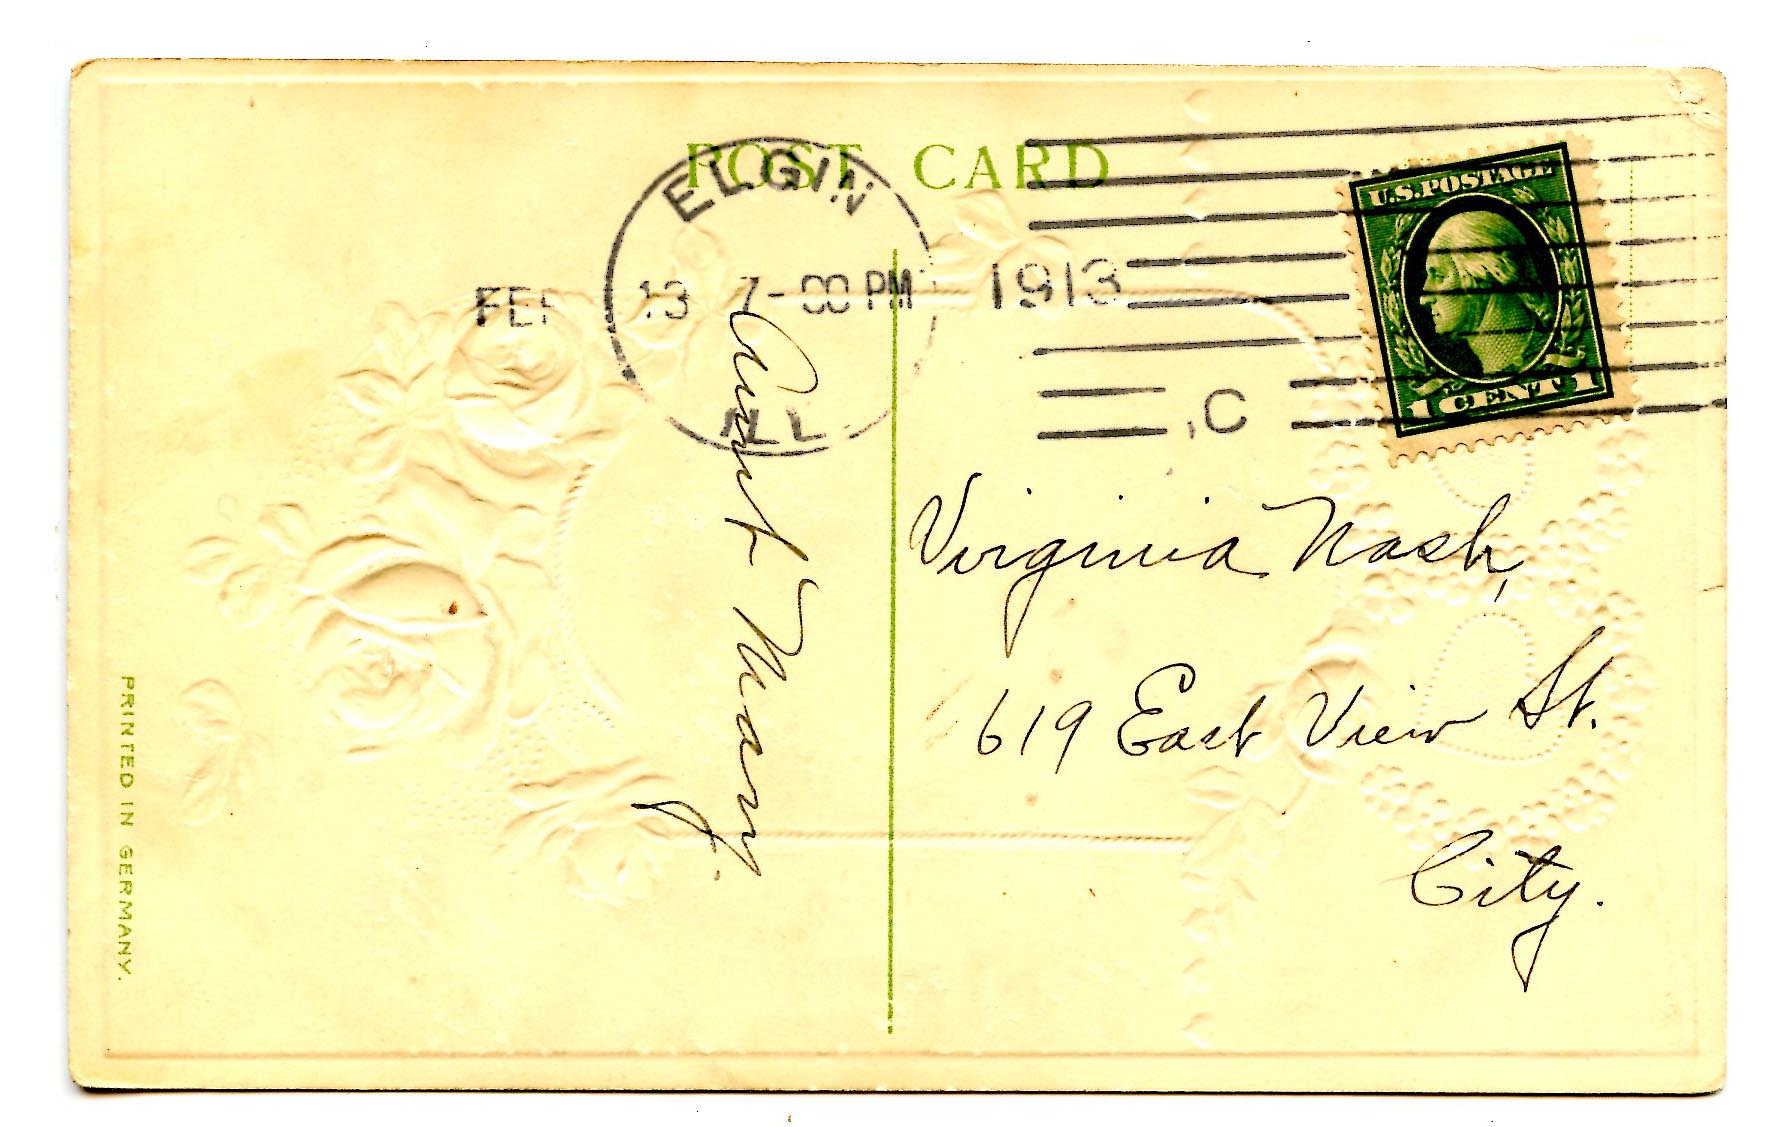 POST CARD
ELGIN
FEB 13 7-00 PM 1913
ILL.
,C
U.S.POSTAGE
1 CENT 1
Aunt Mary.
Virginia Nash,
619 East View St.
City.
PRINTED IN GERMANY.